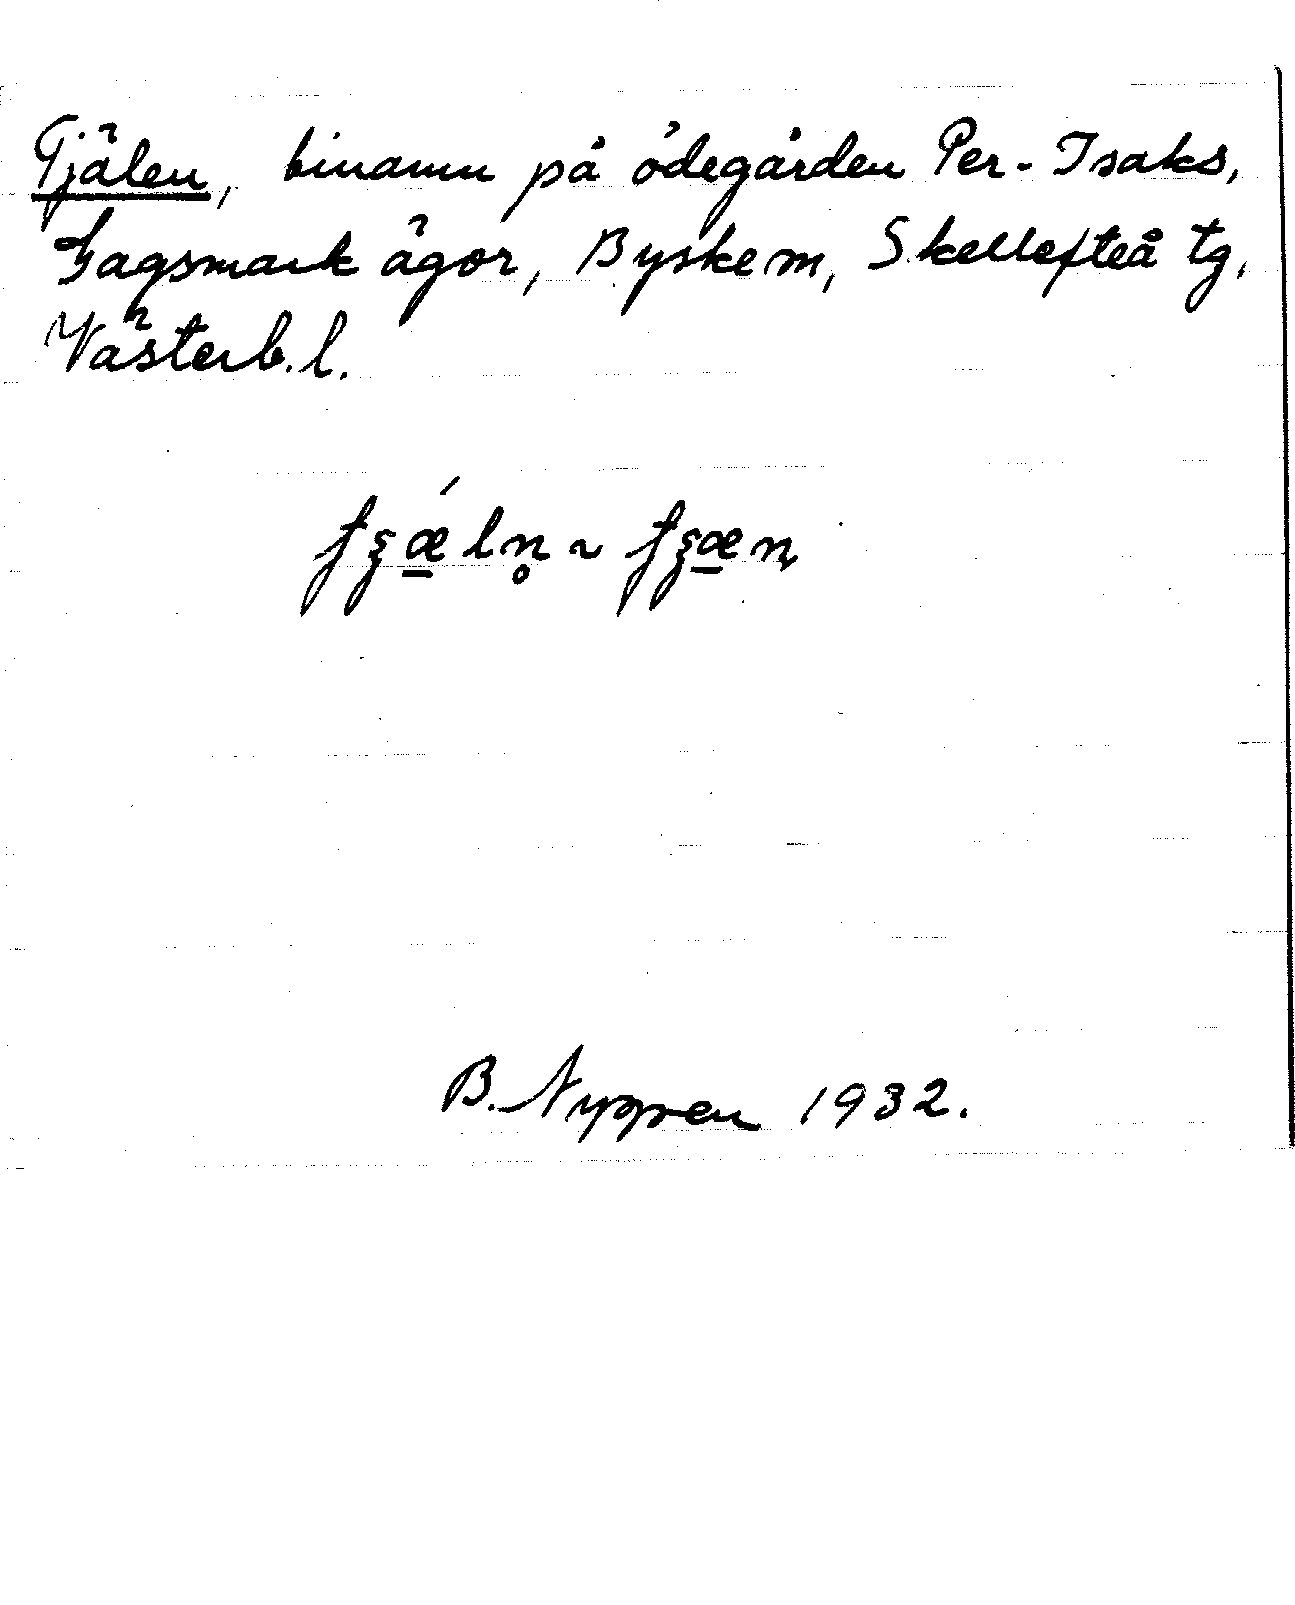 Tjälen, binamn på ödegården Per-Isaks,
Gagsmark ägor, Byske m, Skellefteå tg,
Västerb.l.
B. Nygren 1932.